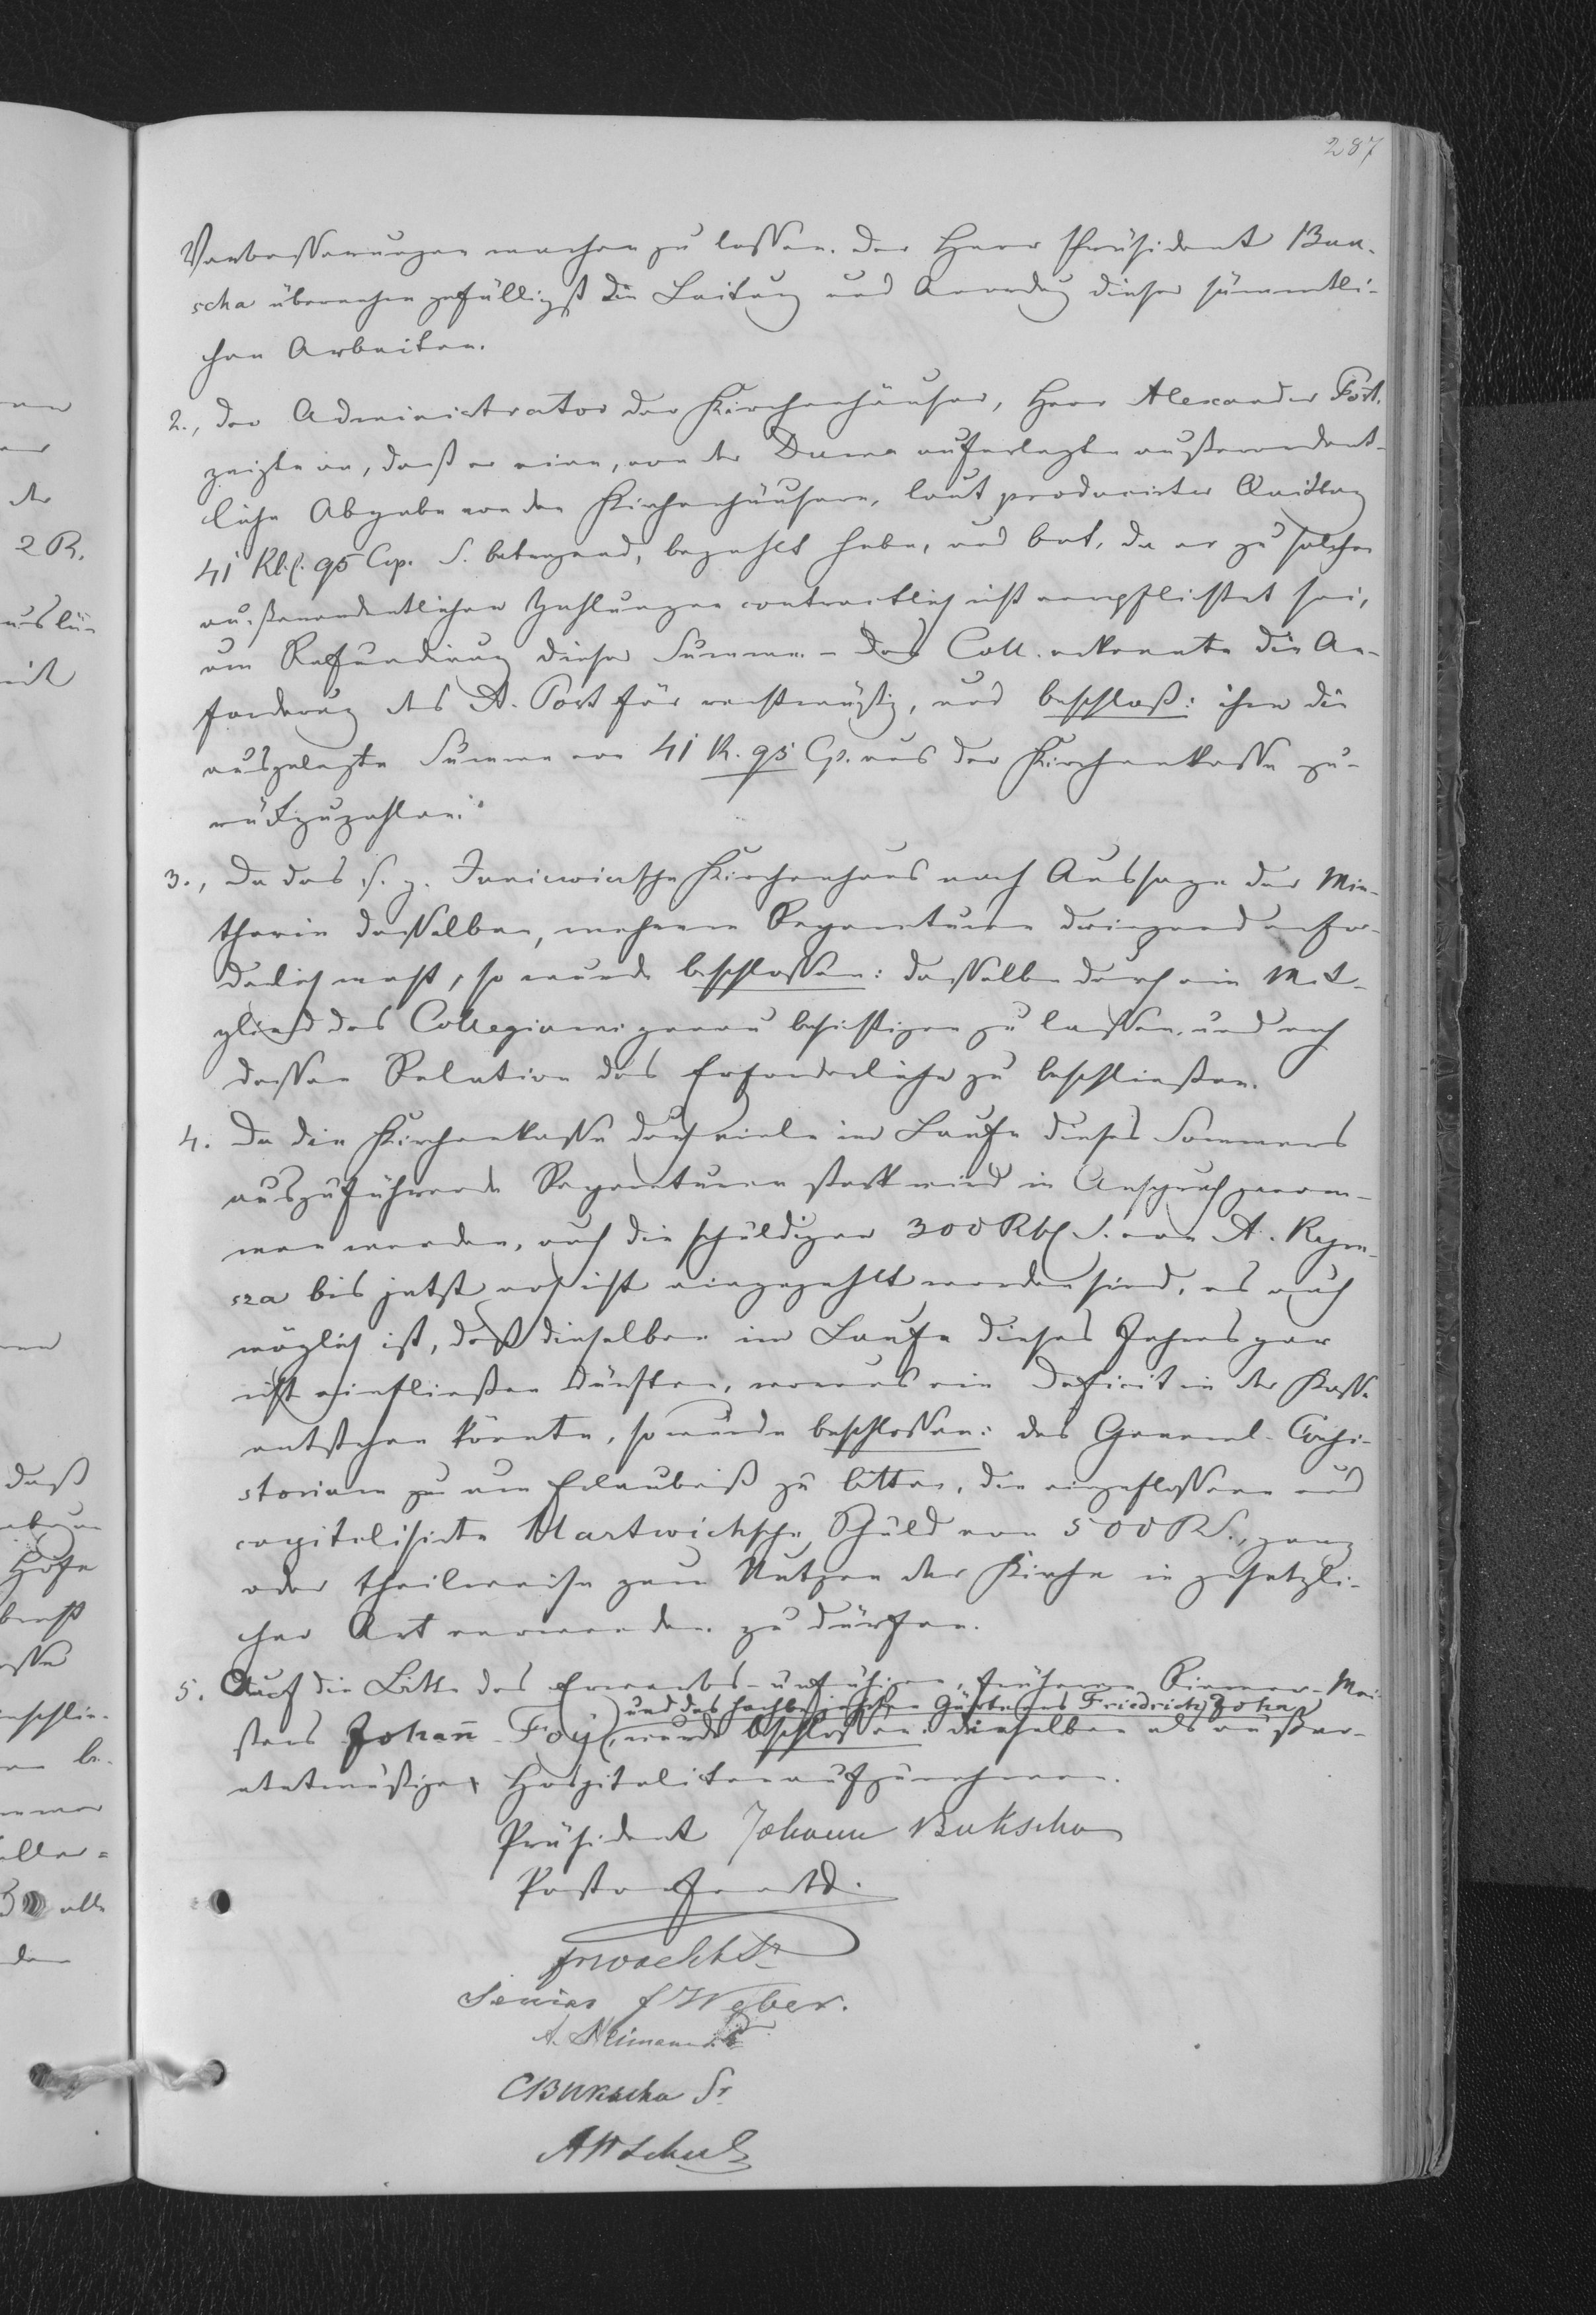 287
Verbesserungen machen zu lassen. Der Herr Präsident Buk-
scha übernehme gefälligst die Leitung und Anordng dieser sämmtli-
chen Arbeiten.
2., Der Administrator der Kirchenhäuser, Herr Alexander Port.
zeigte an, daß er eine, von der Duma auferlegte außerordent-
liche Abgabe von den Kirchenhäusern, laut producirter Quittung
41 Rbl. 95 Cop. S. betragend, bezahlt habe, und bat, da er zu solchen
außerordentlichen Zahlungen contractlich nicht verpflichtet sei,
um Refundirung dieser Summe. – Das Coll. erkannte die An-
forderung des A. Port für rechtmäßig, und beschloß: ihm die
ausgelegte Summe von 41 R. 95 Cp. aus der Kirchenkasse zu-
rückzuzahlen.
3., Da das s. g. Janiewiczsche Kirchenhaus nach Aussage der Mie-
therin desselben, mehrere Reparaturen dringend erfor-
derlich macht, so wurde beschlossen: dasselbe durch ein Mit-
glied des Collegiums genau besichtigen zu lassen, und nach
dessen Relation das Erforderliche zu beschließen.
4. Da die Kirchenkasse durch viele im Laufe dieses Sommers
auszuführende Reparaturen stark wird in Anspruch genom-
men werden, auch die schuldigen 300 Rbl S. von A. Rym-
sza bis jetzt noch nicht eingezahlt worden sind, es auch
möglich ist, daß dieselben im Laufe dieses Jahres gar
nicht einfließen dürften, woraus ein Deficit in der Kasse
entstehen könnte, so wurde beschlossen: das General-Consi-
storium zu um Erlaubniß zu bitten, die eingeflossene und
capitalisirte Martwichsche Schuld von 500 RS., ganz
oder theilweise zum Nutzen der Kirche in gesetzli-
cher Art verwenden zu dürfen.
5. Auf die Bitte des Erwerbs-unfähigen, früheren Riemer-Mei-
und des hochbejahrten Gärtners Friedrich John
sters Johañ Foy, wurde beschlossen: dieselben als außer-
etatmäßige Hospitaliten aufzunehmen.
Präsident Johann Bukscha
Pastor
Senior J Weber.
A. Neimann
CBukscha Sr
A Schulz